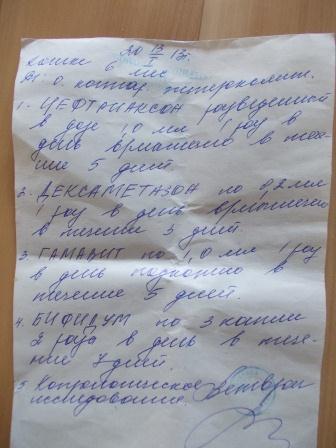 20 13/I 13г.
Кошке 6 мес
Ds: о. катар. энтероколит.
1. ЦЕФТРИАКСОН разведенный
в дозе 1,0 мл 1 раз в
день в/мышечно в тече-
ние 5 дней.
2. ДЕКСАМЕТАЗОН по 0,2 мл
1 раз в день в/мышечно
в течение 3 дней.
3. ГАМАВИТ по 1,0 мл 1 раз
в день подкожно в
течение 5 дней.
4. БИФИДУМ по 3 капли
2 раза в день в тече-
ние 7 дней.
5. Копрологическое Ветврач
исследование.